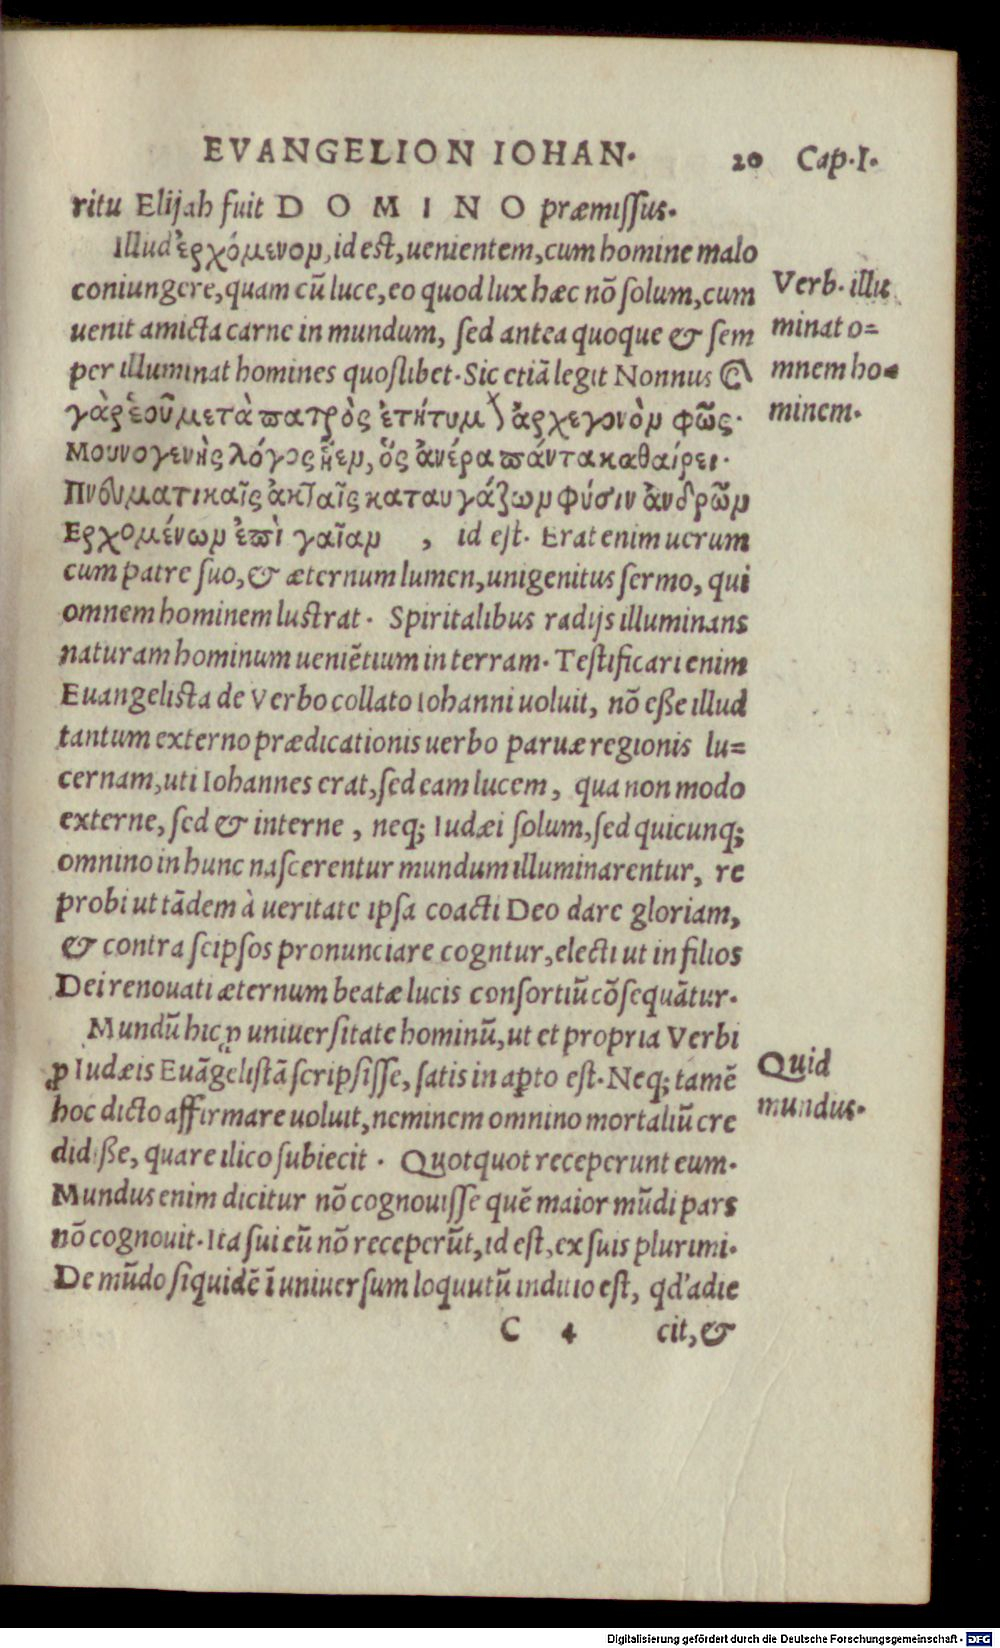 EVANGELION IOHAN. 20 Cap. I.
ritu Elijah fuit D O M I N O præmiſſus.
Illud ἐρχόμενον, id eſt, uenientem, cum homine malo
coniungere, quam cū luce, eo quod lux hæc nō ſolum, cum
uenit amicta carne in mundum, ſed antea quoque & ſem
per illuminat homines quoſlibet. Sic etiā legit Nonnus
Verb. illu
minat o=
mnem ho=
minem.
γὰρ ἑοῦ μετὰ πατρὸς ἐτήτυμ ἀρχεγονὸν φῶς.
Μουνογενὴς λόγος ἦεν, ὃς ἀνέρα πάντα καθαίρει.
Πνευματικαῖς ἀκτῖαις καταυγάζων φύσιν ἀνδρῶν
Ερχομένων ἐπὶ γαῖαν , id eſt. Erat enim uerum
cum patre ſuo, & æternum lumen, unigenitus ſermo, qui
omnem hominem luſtrat. Spiritalibus radijs illuminans
naturam hominum ueniētium in terram. Teſtificari enim
Euangeliſta de Verbo collato Iohanni uoluit, nō eße illud
tantum externo prædicationis uerbo paruæ regionis lu=
cernam, uti Iohannes erat, ſed eam lucem, qua non modo
externe, ſed & interne, neq; Iudæi ſolum, ſed quicunq;
omnino in hunc naſcerentur mundum illuminarentur, re
probi ut tādem à ueritate ipſa coacti Deo dare gloriam,
& contra ſeipſos pronunciare cogntur, electi ut in filios
Dei renouati æternum beatæ lucis conſortiū cōſequātur.
Mundū hic ꝓ uniuerſitate hominū, ut et propria Verbi
ꝓ Iudæis Euāgeliſtā ſcripſiſſe, ſatis in aꝑto eſt. Neq; tamē
hoc dicto affirmare uoluit, neminem omnino mortaliū cre
didiße, quare ilico ſubiecit. Quotquot receperunt eum.
Mundus enim dicitur nō cognouiſſe quē maior mūdi pars
nō cognouit. Ita ſui eū nō receperūt, id eſt, ex ſuis plurimi.
De mūdo ſiquidē ī uniuerſum loquutū inditio eſt, qd' adie
Quid
mundus.
C 4 cit, &
Digitalisierung gefördert durch die Deutsche Forschungsgemeinschaft - DFG